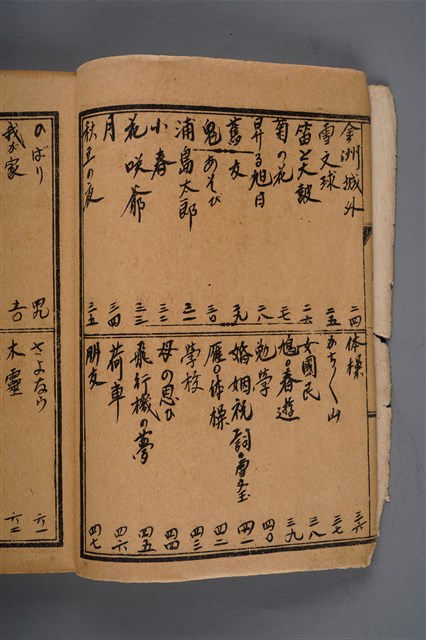 金洲城外 二四
雪文球 二五
笛と大鼓 二六
菊の花 二七
昇る旭日 二八
舊友 二九
鬼あそび 三〇
浦島太郎 三一
小春 三二
花咲爺 三三
月 三四
秋里の夜 三五
体操 三六
かち〱山 三七
女國民 三八
鳩の春遊 三九
勉學 四〇
婚姻祝詞・雪文玉 四一
雁の体操 四二
學校 四三
母の思ひ 四四
飛行機の夢 四五
荷車 四六
朋友 四七
のぼり 四九
我が家 五〇
さよなら 六一
木靈 六二